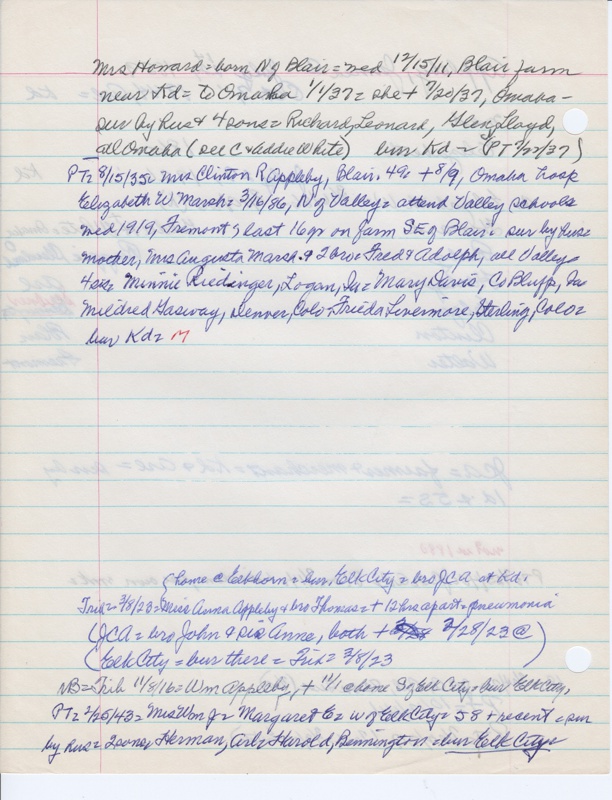 Mrs Howard = born N of Blair = wed 12/15/11, Blair farm
near Kd = to Omaha 1/1/37 = she + 7/20/37, Omaha -
sur by Hus & 4 sons = Richard, Leonard, Glen, Lloyd,
all Omaha (see C & Addie White) bur Kd = (PT 7/22/37)
PT = 8/15/35 = Mrs Clinton R Appleby, Blair. 49 = + 8/9, Omaha hosp
Elizabeth W Marsh = 3/16/86, N of Valley = attend Valley schools
wed 1919, Fremont = last 16 yr on farm SE of Blair = sur by Hus =
mother, Mrs Augusta Marsh & 2 bro = Fred & Adolph, all Valley
4 sis = Minnie Riedinger, Logan, Ia = Mary Davis, Co Bluffs, Ia
Mildred Gasway, Denver, Colo = Frieda Livermore, Sterling, Colo =
bur Kd = M
(home @ Elkhorn = bur. Elk City = bro JCA at Kd.
Trib = 3/8/23 = Miss Anna Appleby & bro Thomas = + 12 hrs apart = pneumonia
(JCA = bro John & sis Anne, both + 2/28/23 @)
(Elk City = bur there = Trib = 3/8/23
NB = Trib 11/8/16 = Wm Appleby, + 11/1 @ home S of Elk City = bur Elk City,
PT = 2/25/43 = Mrs Wm J = Margaret E = W of Elk City = 58 + recent = sur
by Hus = 2 sons, Herman, Arl = Harold, Bennington = bur Elk City =